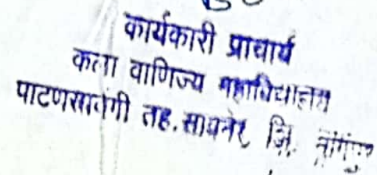 कार्यकारी प्राचार्य
कला वाणिज्य महाविद्यालय
पाटणसावंगी तह. सावनेर, जि. नागपूर